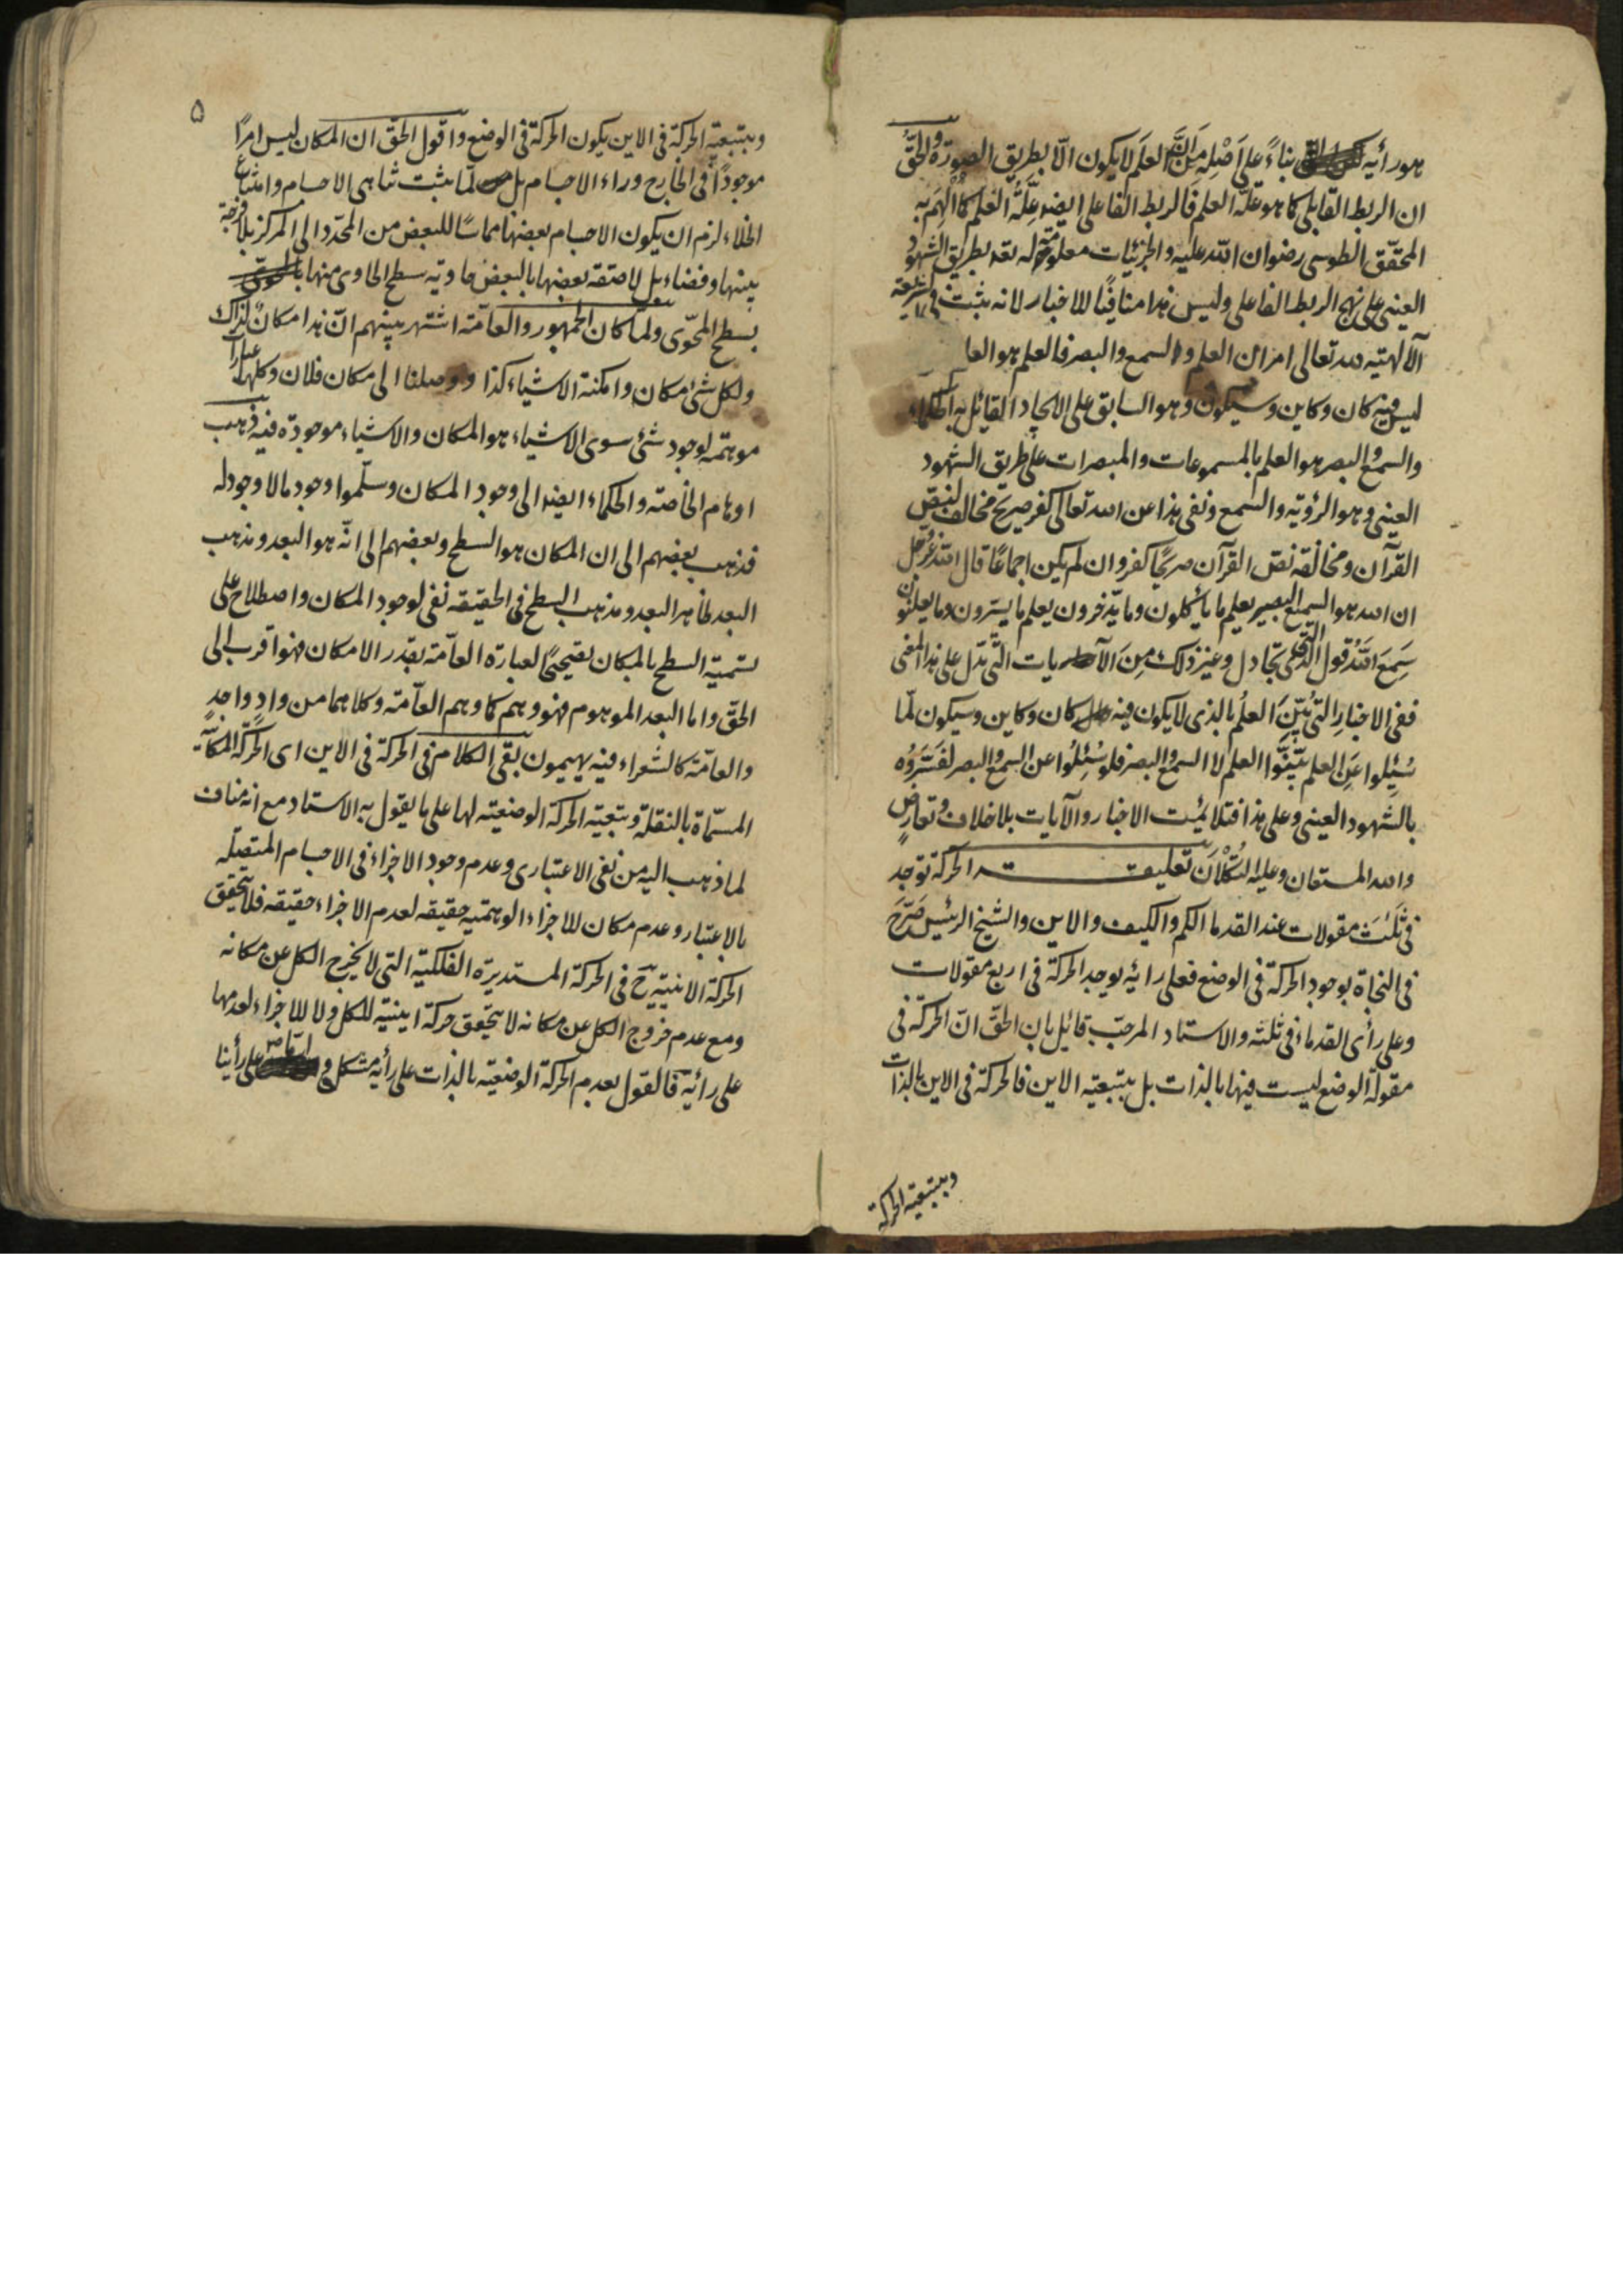 هو رأيه بناءً على اَصْلِه مِنْ اَنَّ العلم لا يكون الّا بطريق الصورة والحقُّ
ان الربط القابلي كما هو علّة العلم فالربط الفاعلي ايضا عِلَّةُ العلم كما اُلْهِمَ به
المحقّق الطوسي رضوان الله عليه والجزئيات معلومة له تعالى بطريق الشهود
العيني على نهج الربط الفاعلي وليس هذا منافيًا للاخبار لانه يثبت في الشريعة
الآلهية لله تعالى امران العلم والسمع والبصر فالعلم هو العا
ليس فيه كان وكاين وسيكون وهو السابق على الايجاد القائل به الحكماء
والسمع والبصر هو العلم بالمسموعات والمبصرات على طريق الشهود
العيني وهو الرؤية والسمع ونفي هذا عن الله تعالى كفر صريح مخالف لنص
القرآن ومخالفة نص القرآن صريحًا كفر وان لم يكن اجماعًا قال الله عزّ وجل
ان الله هو السميع البصير يعلم ما يأكلون وما يدّخرون يعلم ما يسرون وما يعلنون
سَمِعَ اللّٰهُ قول الَّتي تجادل وغير ذلك مِنَ الآيات الَّتي تدلّ على هذا المعنى
ففي الاخبار التي بُيِّنَ العلمُ بالذي لا يكون فيه كان وكاين وسيكون لمّا
سُئِلوا عَنِ العلم بَيَّنُوا العلم لا السمع والبصر فلو سُئِلُوا عن السمع والبصر لفَسَّرُوه
بالشهود العيني وعلى هذا فتلايمت الاخبار والآيات بلا خلاف وتعارضٍ
والله المستعان وعليه التُّكْلاَن تعليقة الحركة توجد
في ثَلٰثَ مقولات عند القدماء الكم والكيف والاين والشيخ الرئيس صَرَّحَ
في النجاة بوجود الحركة في الوضع فعلى رائه يوجد الحركة في اربع مقولات
وعلى رأى القدماء في ثلثه والاستاد المرحّب قائل بان الحقّ انّ الحركة في
مقولة الوضع ليست فيها بالذات بل بتبعيّة الاين فالحركة في الاين بالذات
وبتبعية الحركة
۵
وبتبعيّة الحركة في الاين يكون الحركة في الوضع واقول الحقّ ان المكان ليس امرًا
موجودًا في الخارج وراء الاجسام بل لمّا يثبت تناهي الاجسام وامتناع
الخلاء لزم ان يكون الاجسام بعضها مماسًا للبعض من المحدّد الى المركز بلا فرجة
بينها وفضاء بل لاصقة بعضها بالبعض حاوية سطح الحاوي منها
بسطح المحوّى ولمّا كان الجمهور والعامّة اشتهر بينهم انّ هذا مكانٌ لذاك
ولكل شيء مكان وامكنة الاشياء كذا ووصلنا الى مكان فلان وكلها عبارات
موهمة لوجود شيء سوى الاشياء هو المكان والاشياء موجودة فيه فذهب
اوهام الخاصّة والحكماء ايضا الى وجود المكان وسلّموا وجود ما لا وجود له
فذهب بعضهم الى ان المكان هو السطح وبعضهم الى انّه هو البعد ومذهب
البعد ظاهر البعد ومذهب السطح في الحقيقه نفى لوجود المكان واصطلاح على
تسمية السطح بالمكان تصحيحًا لعبارة العامّة بقدر الامكان فهو اقرب الى
الحقّ واما البعد الموهوم فهو وهم كما وهم العامّة وكلاهما من وادٍ واحدٍ
والعامّة كالشعراء فيه يهيمون بقى الكلام في الحركة في الاين اى الحركة المكانيّة
المسمّاة بالنقلة وتبعيّة الحركة الوضعيّة لها على ما يقول به الاستاد مع انه مناف
لما ذهب اليه من نفى الاعتبارى وعدم وجود الاجزاء في الاجسام المتصلّه
بالاعتبار وعدم مكان للاجزاء الوهميّه حقيقه لعدم الاجزاء حقيقه فلا يتحقق
الحركة الاينيّة ح في الحركة المستديرة الفلكيّة التي لا يخرج الكل عن مكانه
ومع عدم خروج الكل عن مكانه لا يتحقق حركة اينيّه للكل ولا للاجزاء لعدمها
على رائه فالقول بعدم الحركة الوضعيّه بالذات على رأيه مشكل و على رأينا